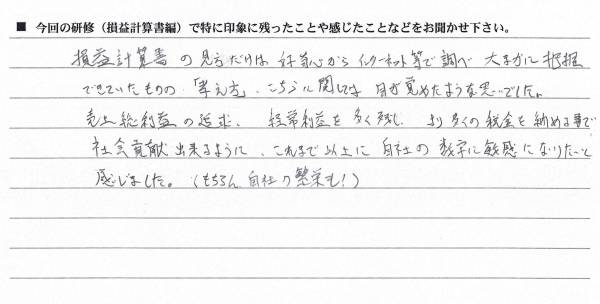 ■ 今回の研修（損益計算書編）で特に印象に残ったことや感じたことなどをお聞かせ下さい。
損益計算書の見方だけは 好奇心からインターネット等で調べ 大まかに把握
できていたものの、「考え方」、こちらに関しては 目が覚めたような思いでした。
売上総利益の追求、経常利益を多く残し、より多くの税金を納める事で
社会貢献出来るように、これまで以上に 自社の数字に敏感になりたいと
感じました。（もちろん 自社の繁栄も！）